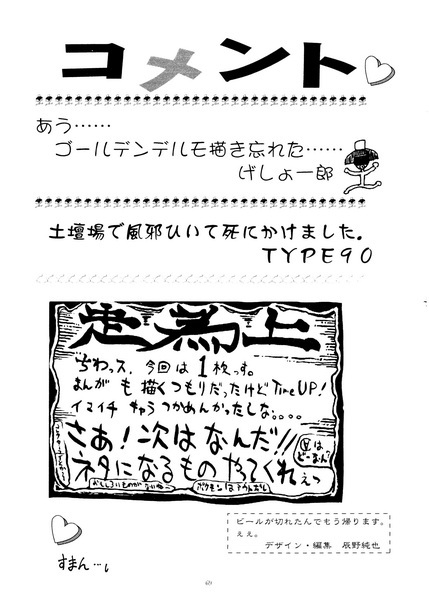 コメント
あう……
ゴールデンデルモ描き忘れた……
げしょ一郎
土壇場で風邪ひいて死にかけました。
TYPE90
走為上
ちわっス、今回は1枚っす。
まんが も 描くつもりだったけど Time UP!
イマイチ キャラ つかめんかったしな。。。。
さあ!次はなんだ!!
ネタになるものやってくれぇっ
ビールが切れたんでもう帰ります。
ええ。
デザイン・編集 辰野純也
すまん…